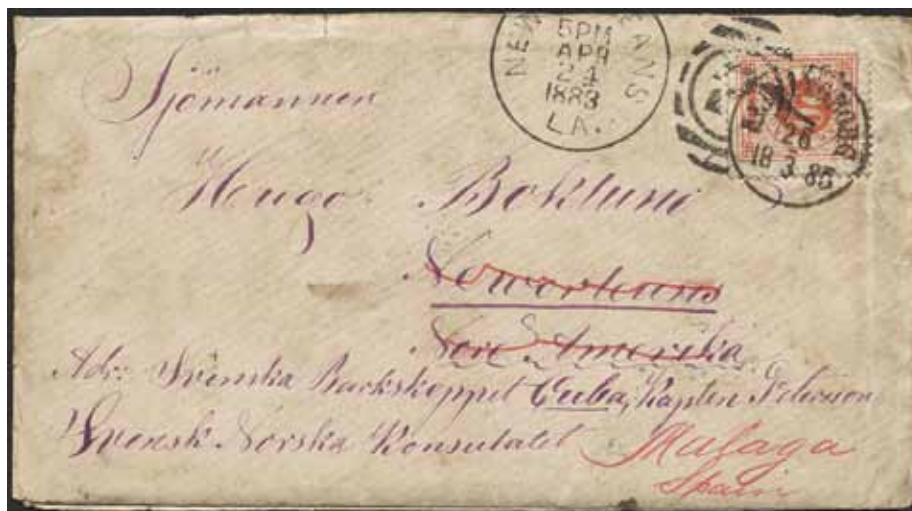 NEW ANS
5PM
APR
24
1883
LA.
26
18 3 83
Sjömannen
Hugo Boklund
Neworleans
Nord Amerika
Adr: Svenska Barkskeppet Cuba, Kapten Peterson
Svensk Norska Konsulatet Malaga
Spain